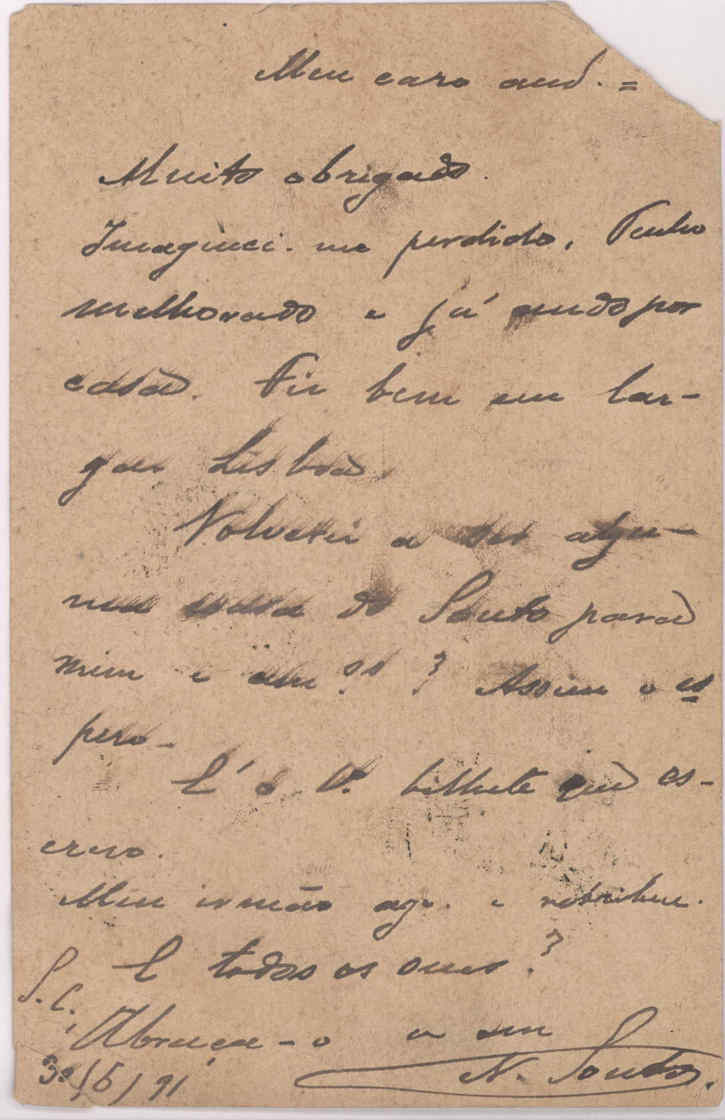 Meu caro am.º =
Muito obrigado.
Imaginei-me perdido. Tenho
melhorado e já ando por
casa. Fez bem em lar-
gar Lisboa.
Volverá a ser algu-
ma cousa do Souto para
mim e am.ºˢ? Assim o es
pero.
É o 1º bilhete que es-
crevo.
Meu irmão agr. e retribue.
E todos os seus?
S. C.,
Abraça-o o seu
30/6/91 N. Souto.